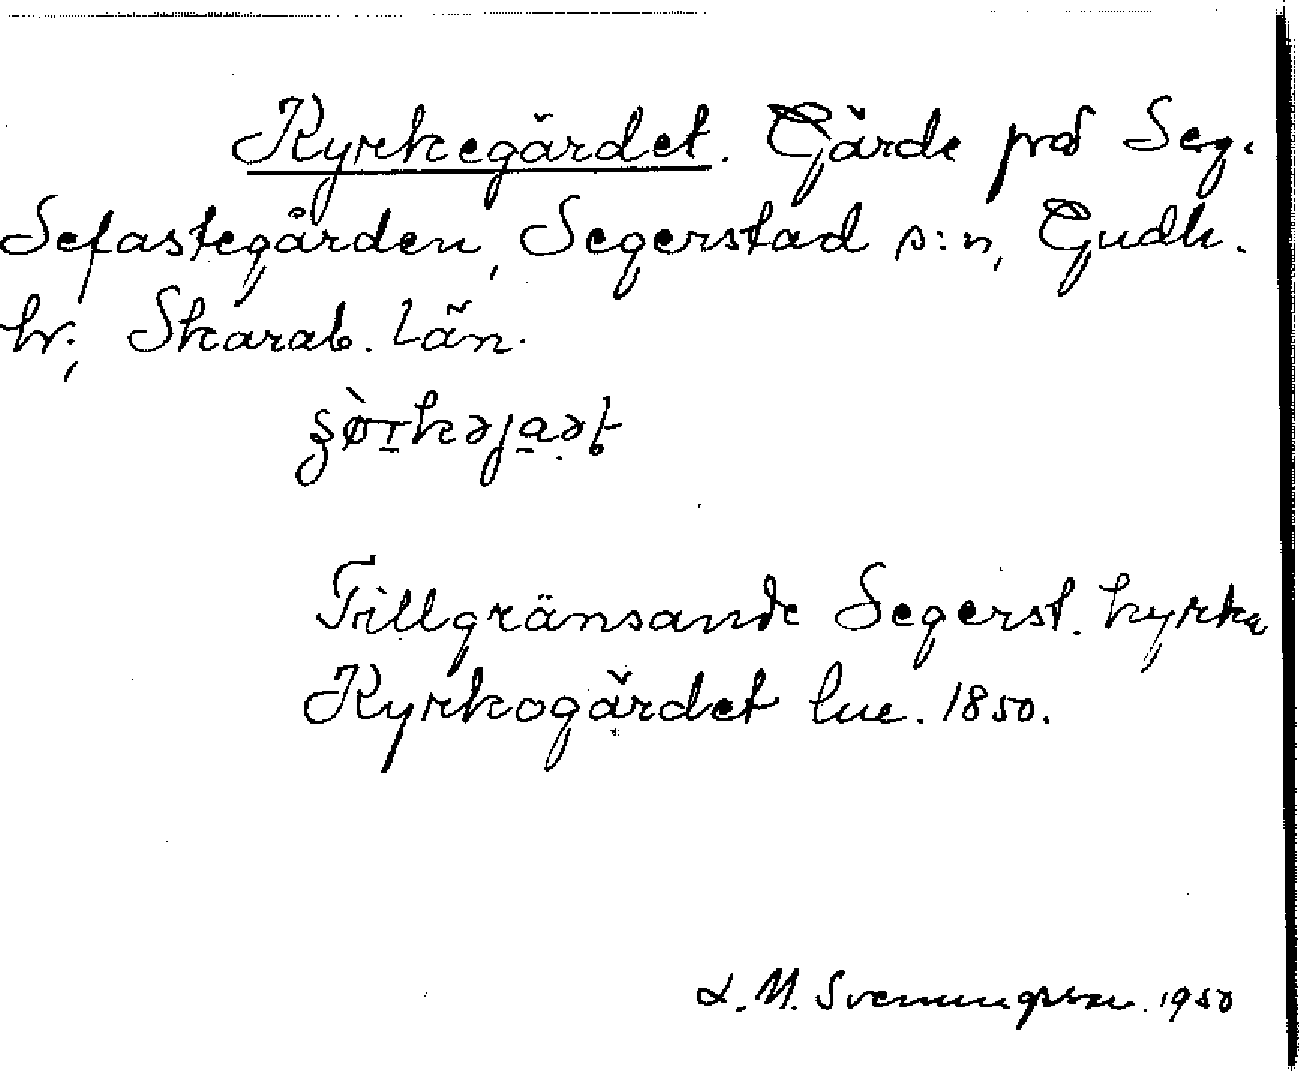 Kyrkegärdet. Gärde på Seg.
Sefastegården, Segerstad s:n, Gudh.
hr; Skarab. län.
Tillgränsande Segerst. kyrka
Kyrkogärdet lue. 1850.
L. M. Svenungsson. 1950